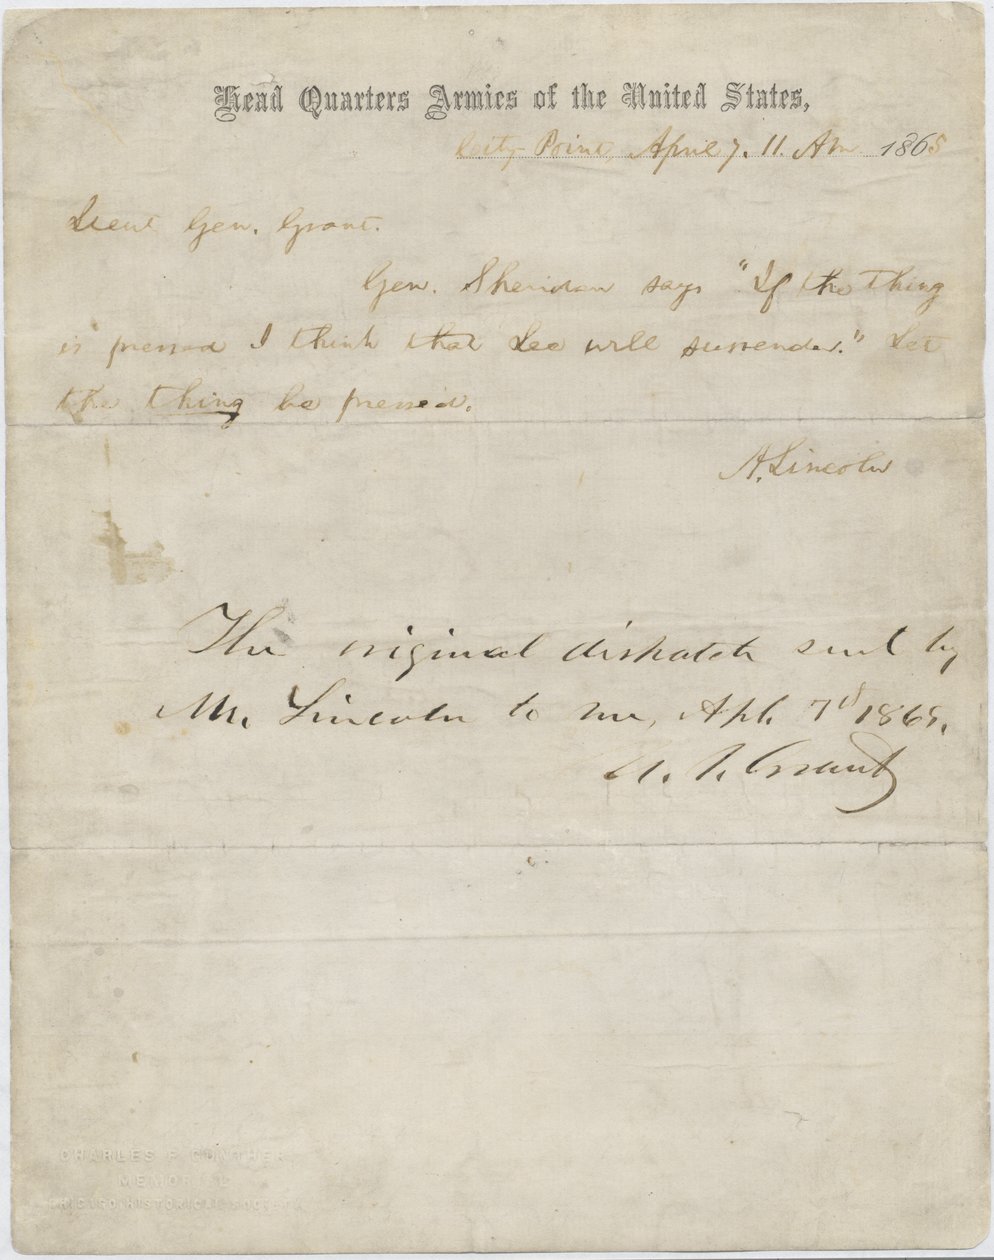 Head Quarters Armies of the United States,
City Point, April 7. 11. AM. 1865
Lieut Gen. Grant.
Gen. Sheridan says "If the thing
is pressed I think that Lee will surrender." Let
the thing be pressed.
A. Lincoln
The original dispatch sent by
Mr. Lincoln to me, Apl. 7th 1865.
U. S. Grant
CHARLES F. GUNTHER
MEMORIAL
CHICAGO HISTORICAL SOCIETY